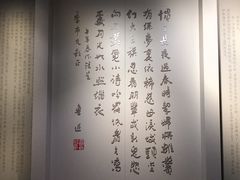 慣于長夜過春時挈婦將雛鬢
有絲夢裏依稀慈母淚城頭變
幻大王旗忍看朋輩成新鬼怒
向刀叢覓小詩吟罷低眉無寫處
月光如水照緇衣
季市兄教正
魯迅